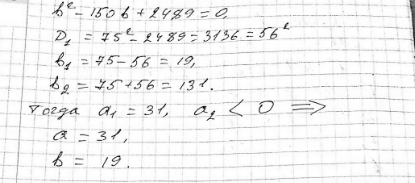 b² - 150b + 2489 = 0,
D₁ = 75² - 2489 = 3136 = 56²
b₁ = 75 - 56 = 19,
b₂ = 75 + 56 = 131.
Тогда a₁ = 31, a₂ < 0 ⟹
a = 31,
b = 19.